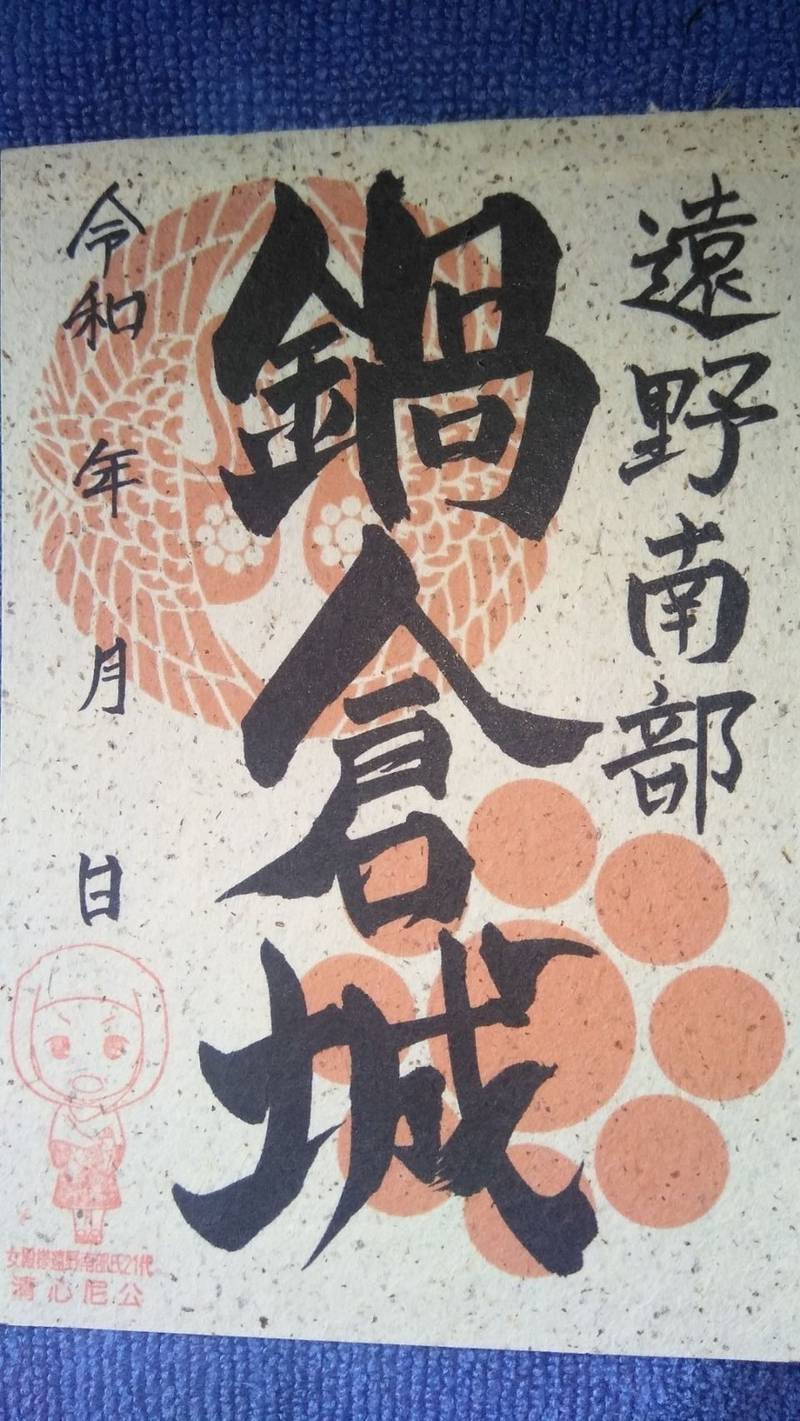 遠野南部
鍋倉城
令和 年 月 日
女殿様遠野南部氏21代
清心尼公